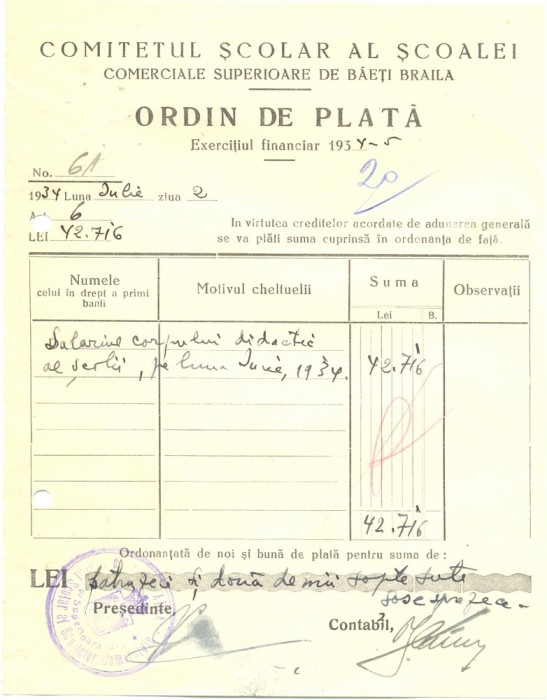 COMITETUL ȘCOLAR AL ȘCOALEI
COMERCIALE SUPERIOARE DE BĂEȚI BRAILA
ORDIN DE PLATĂ
Exercițiul financiar 1934-5
No. 61
20
1934 Luna Iulie ziua 2
6
LEI 42.716
In virtutea creditelor acordate de adunarea generală
se va plăti suma cuprinsă în ordonanța de față.
Numele
celui in drept a primi
banii
Motivul cheltuelii
Suma
Lei B.
Observații
Salariile corpului didactic
al școlii, pe luna Iunie, 1934.
42.716
42.716
Ordonanțată de noi și bună de plată pentru suma de :
LEI patruzeci și două de mii șapte sute
șase spreze[ce]
Președinte,
Contabil,